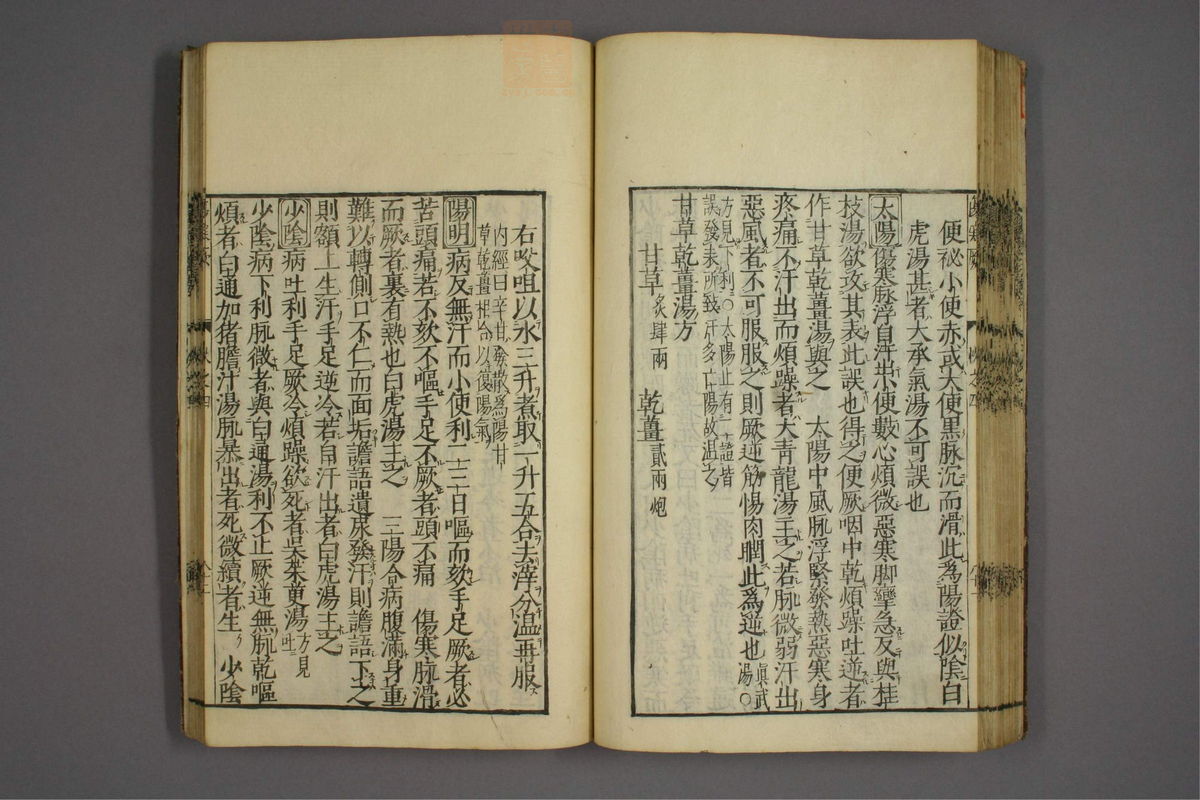 便祕小便赤或大便黒脉沉而滑此爲陽證似陰白
虎湯甚者大承氣湯不可誤也
太陽傷寒脉浮自汗出小便數心煩微惡寒脚攣急反與桂
枝湯欲攻其表此誤也得之便厥咽中乾煩躁吐逆者
作甘草乾薑湯與之　太陽中風脉浮緊發熱惡寒身
疼痛不汗出而煩躁者大青龍湯主之若脉微弱汗出
惡風者不可服服之則厥逆筋惕肉瞤此爲逆也眞武湯○
方見下利○太陽止有二證皆
誤發表所致汗多亡陽故温之
甘草乾薑湯方
甘草炙肆兩　乾薑貳兩炮
右㕮咀以水三升煮取一升五合去滓分温再服
内經曰辛甘發散爲陽甘
草乾薑相合以復陽氣
陽明病反無汗而小便利二三日嘔而欬手足厥者必
苦頭痛若不欬不嘔手足不厥者頭不痛　傷寒脉滑
而厥者裏有熱也白虎湯主之　三陽合病腹滿身重
難以轉側口不仁而面垢譫語遺尿發汗則譫語下之
則額上生汗手足逆冷若自汗出者白虎湯主之
少陰病吐利手足厥冷煩躁欲死者吳茱萸湯方見吐
少陰病下利脉微者與白通湯利不止厥逆無脉乾嘔
煩者白通加猪膽汁湯脉暴出者死微續者生　少陰